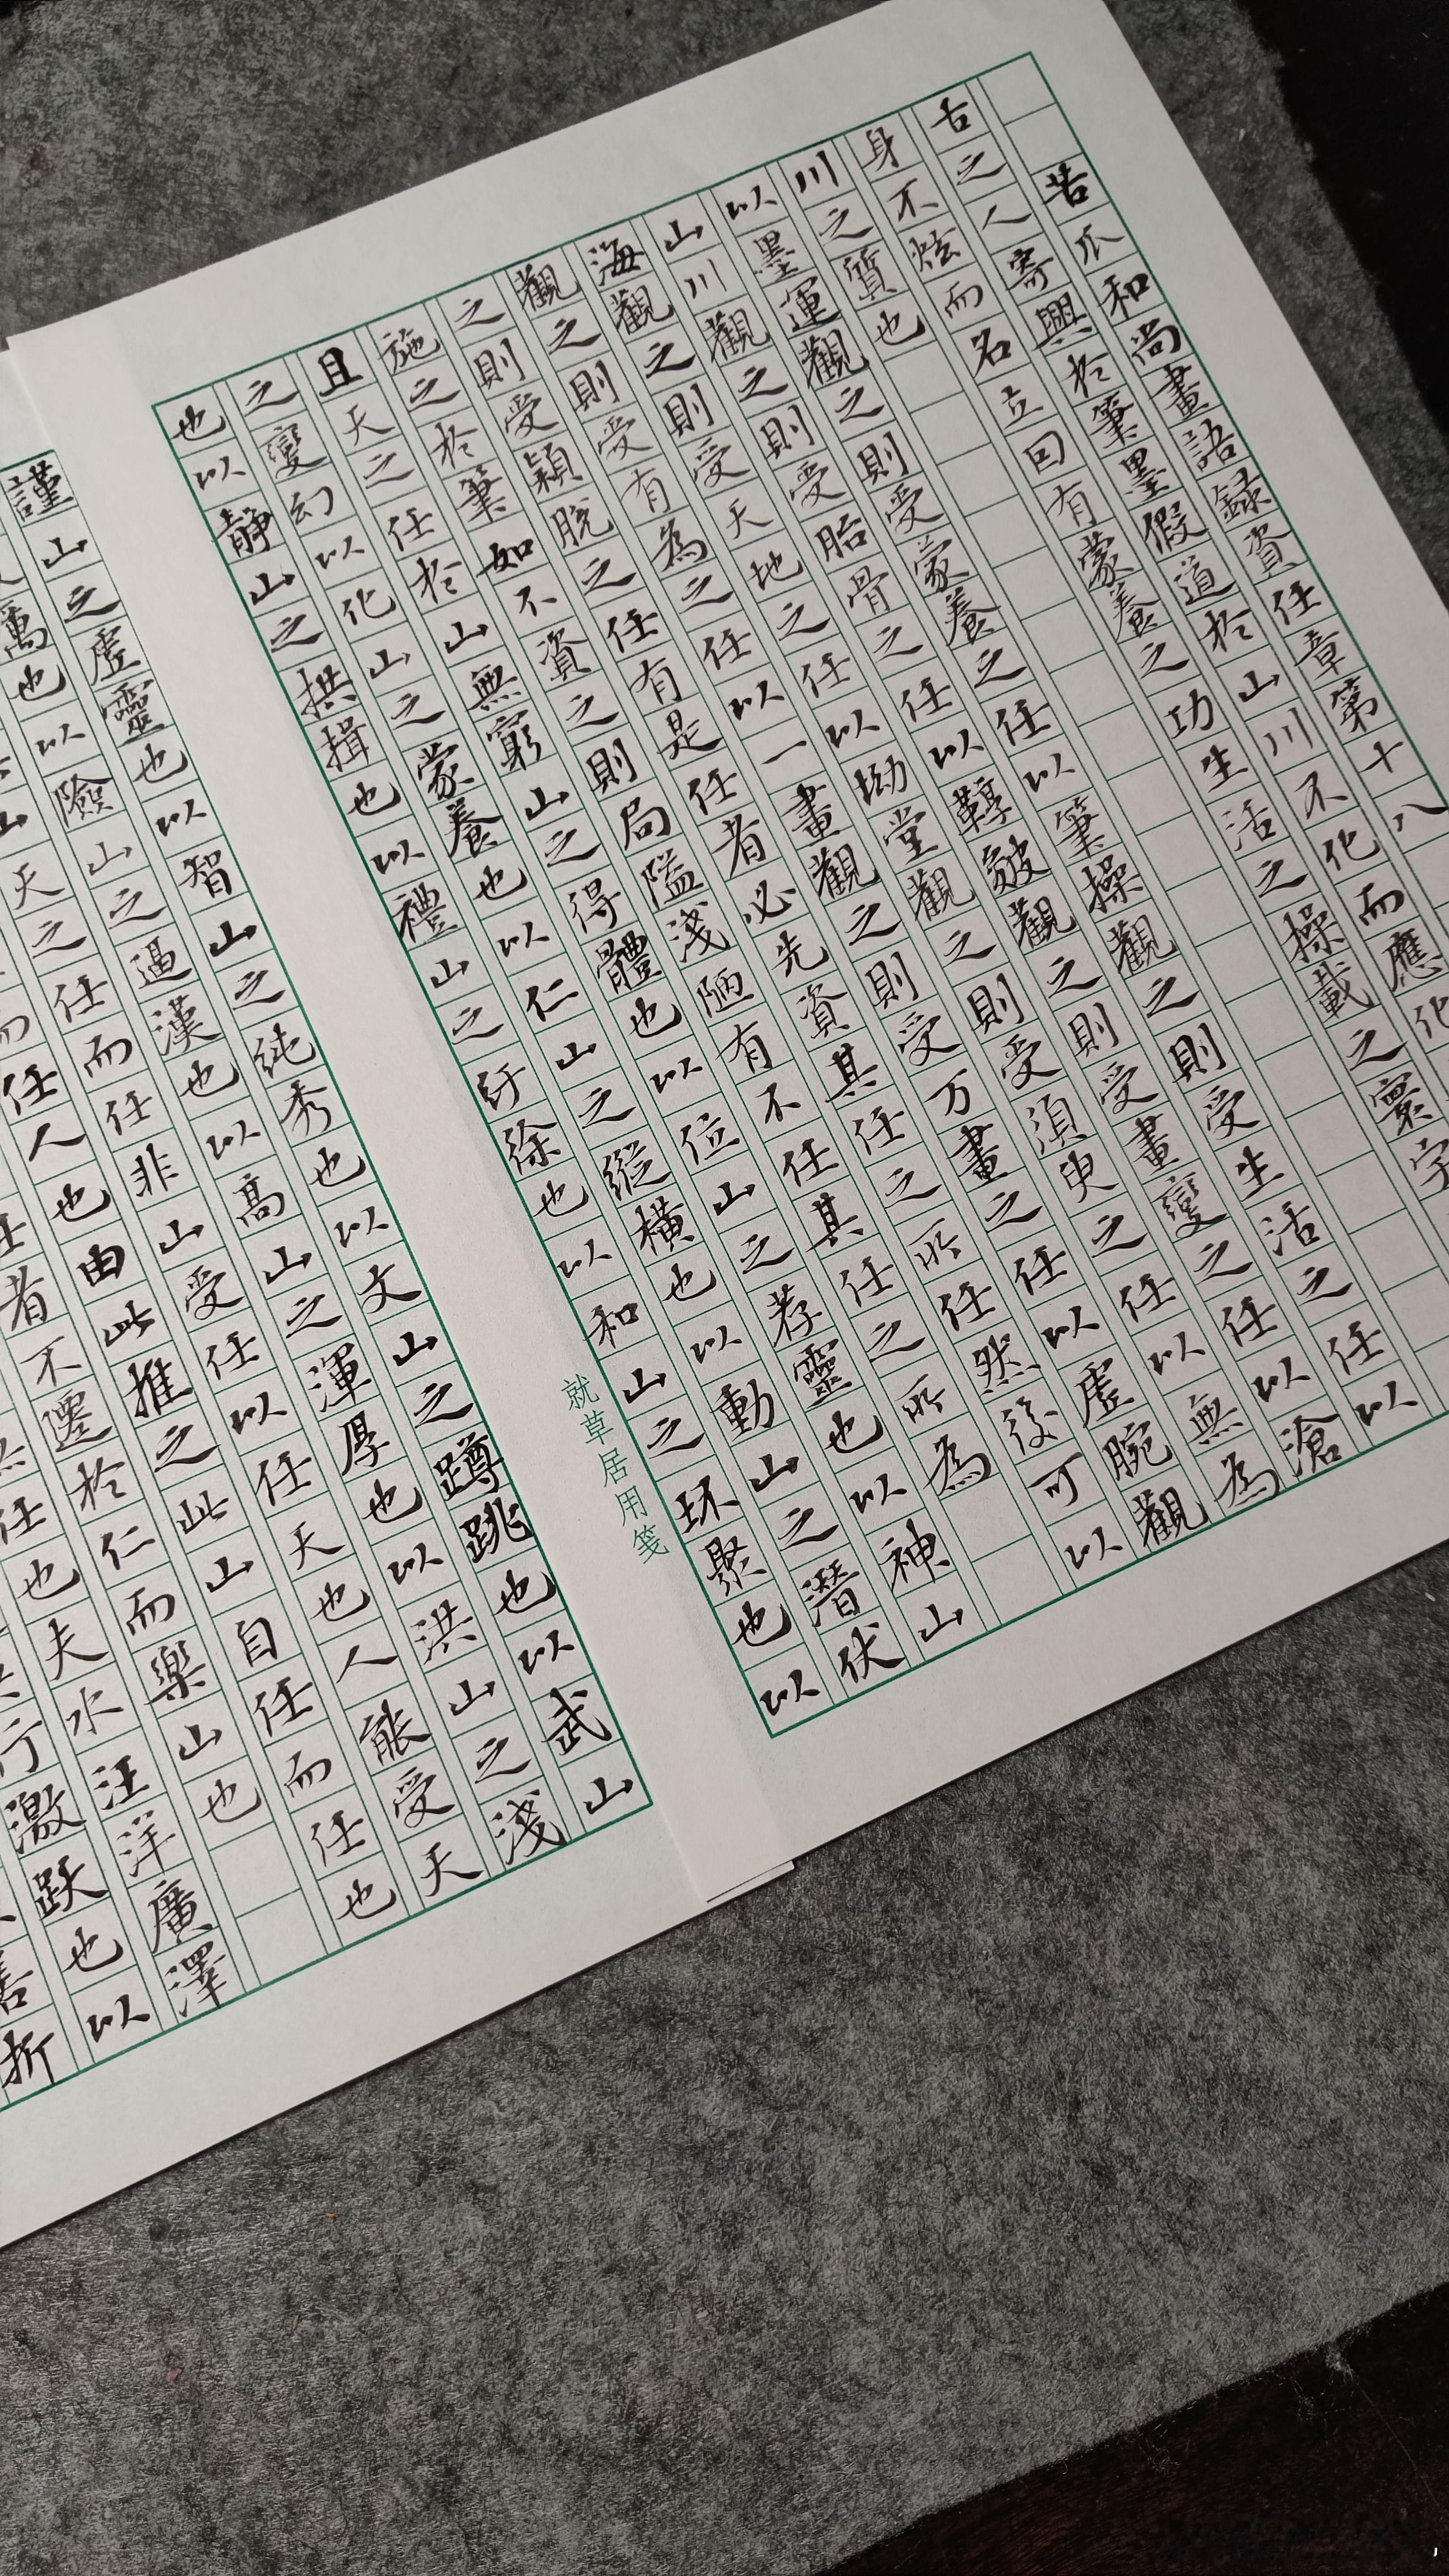 苦瓜和尚畫語録資任章第十八
古之人寄興於筆墨假道於山川不化而應化
身不炫而名立因有蒙養之功生活之操載之寰宇
川之質也
以墨運觀之則受蒙養之任以筆操觀之則受生活之任以
山川觀之則受胎骨之任以鞟皴觀之則受畫變之任以滄
海觀之則受天地之任以坳堂觀之則受須臾之任以無為
觀之則受有為之任以一畫觀之則受万畫之任以虛腕觀
之則受穎脫之任有是任者必先資其任之所任然後可以
施之於筆如不資之則局隘淺陋有不任其任之所為
且天之任於山無窮山之得體也以位山之荐靈也以神山
之變幻以化山之蒙養也以仁山之縱橫也以動山之潛伏
也以靜山之拱揖也以禮山之紆徐也以和山之环聚也以
就草居用笺
謹山之虛靈也以智山之純秀也以文山之蹲跳也以武山
也以險山之逼漢也以高山之渾厚也以洪山之淺
山天之任而任非山受任以任天也人能受天
而任人也由此推之此山自任而任也
任者不遷於仁而樂山也
任也夫水汪洋廣澤
行激跃也以
善折